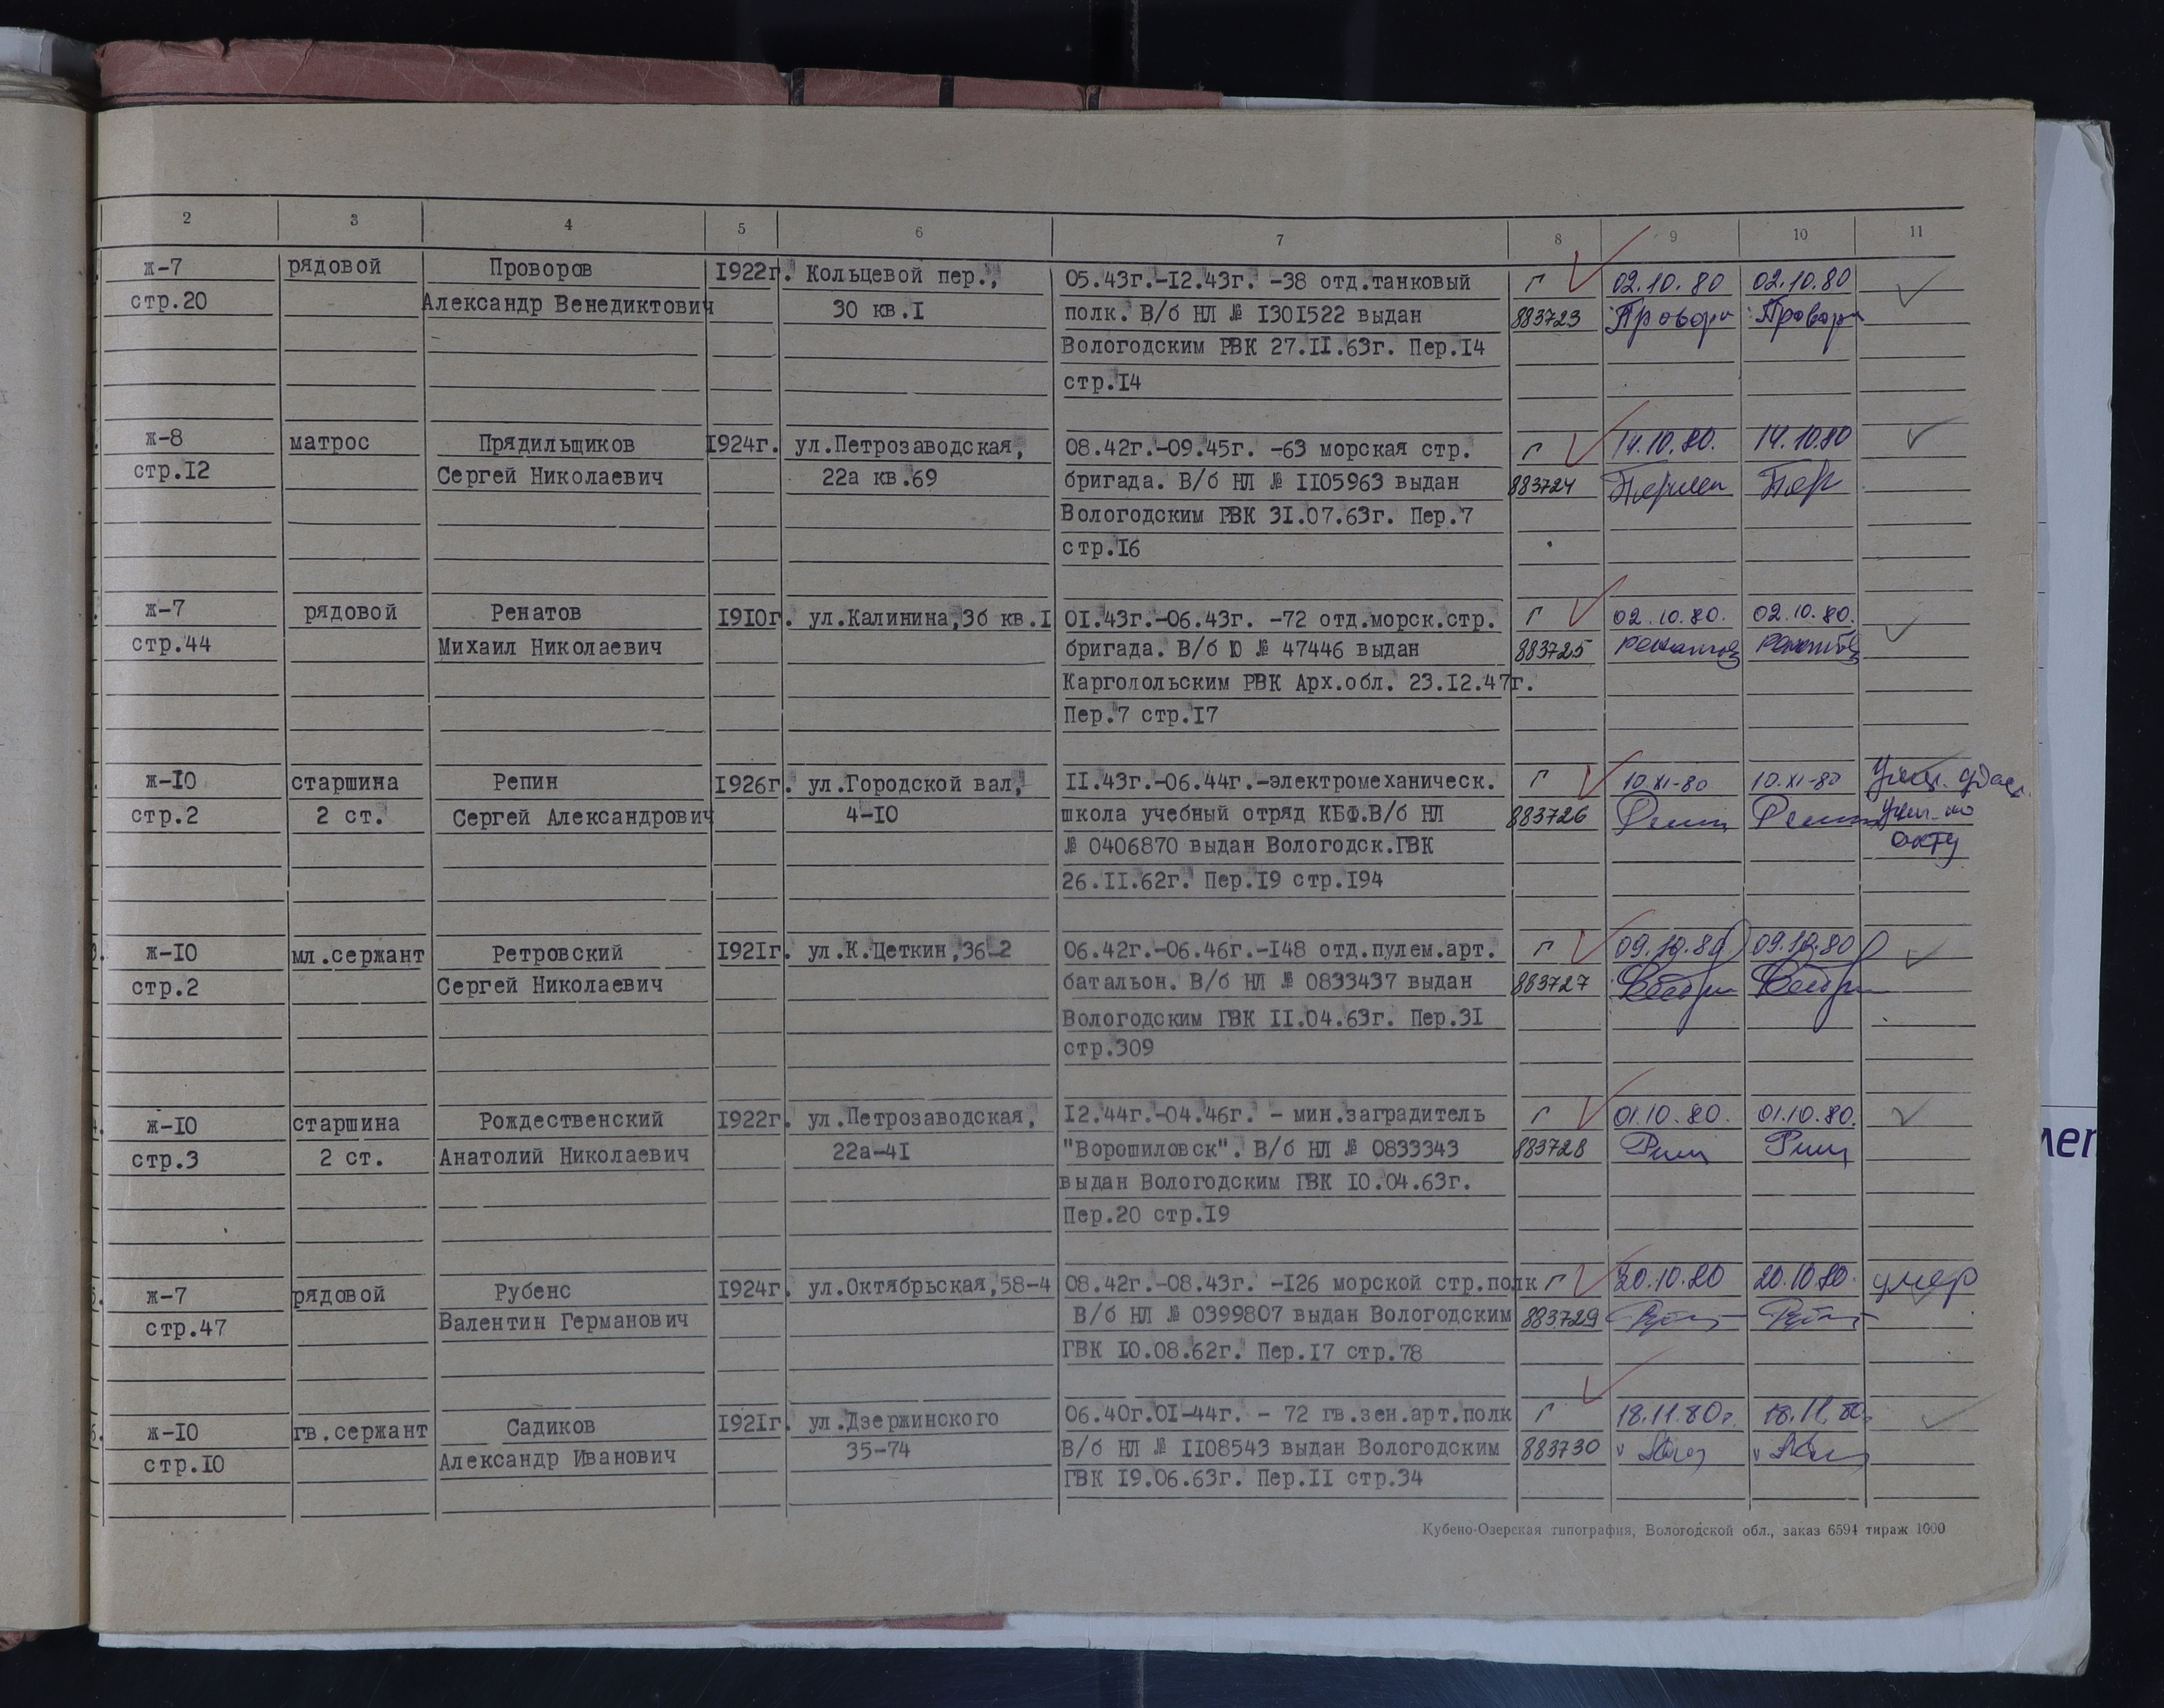 2 3 4 5 6 7 8 9 10 11
ж-7 рядовой Проворов 1922г. Кольцевой пер., 05.43г.-12.43г. -38 отд.танковый Г 02.10.80 02.10.80
стр.20 Александр Венедиктович 30 кв.1 полк. В/б НЛ № 1301522 выдан 883723
Вологодским РВК 27.11.63г. Пер.14
стр.14
ж-8 матрос Прядильщиков 1924г. ул.Петрозаводская, 08.42г.-09.45г. -63 морская стр. Г 14.10.80. 14.10.80
стр.12 Сергей Николаевич 22а кв.69 бригада. В/б НЛ № 1105963 выдан 883724
Вологодским РВК 31.07.63г. Пер.7
стр.16
ж-7 рядовой Ренатов 1910г. ул.Калинина,36 кв.1 01.43г.-06.43г. -72 отд.морск.стр. Г 02.10.80. 02.10.80.
стр.44 Михаил Николаевич бригада. В/б Ю № 47446 выдан 883725
Каргопольским РВК Арх.обл. 23.12.47г.
Пер.7 стр.17
ж-10 старшина Репин 1926г. ул.Городской вал, 11.43г.-06.44г.-электромеханическ. Г 10.XI-80 10.XI-80
стр.2 2 ст. Сергей Александрович 4-10 школа учебный отряд КБФ.В/б НЛ 883726
№ 0406870 выдан Вологодск.ГВК акту
26.11.62г. Пер.19 стр.194
ж-10 мл.сержант Ретровский 1921г. ул.К.Цеткин,36-2 06.42г.-06.46г.-148 отд.пулем.арт. Г 09.10.80 09.10.80
стр.2 Сергей Николаевич батальон. В/б НЛ № 0833437 выдан 883727
Вологодским ГВК 11.04.63г. Пер.31
стр.309
ж-10 старшина Рождественский 1922г. ул.Петрозаводская, 12.44г.-04.46г. - мин.заградитель Г 01.10.80. 01.10.80.
стр.3 2 ст. Анатолий Николаевич 22а-41 "Ворошиловск". В/б НЛ № 0833343 883728
выдан Вологодским ГВК 10.04.63г.
Пер.20 стр.19
ж-7 рядовой Рубенс 1924г. ул.Октябрьская,58-4 08.42г.-08.43г. -126 морской стр.полк Г 20.10.80 20.10.80. умер
стр.47 Валентин Германович В/б НЛ № 0399807 выдан Вологодским 883729
ГВК 10.08.62г. Пер.17 стр.78
ж-10 гв.сержант Садиков 1921г. ул.Дзержинского 06.40г.01-44г. - 72 гв.зен.арт.полк Г 18.11.80г. 18.11.80г
стр.10 Александр Иванович 35-74 В/б НЛ № 1108543 выдан Вологодским 883730
ГВК 19.06.63г. Пер.11 стр.34
Кубено-Озерская типография, Вологодской обл., заказ 6594 тираж 1000